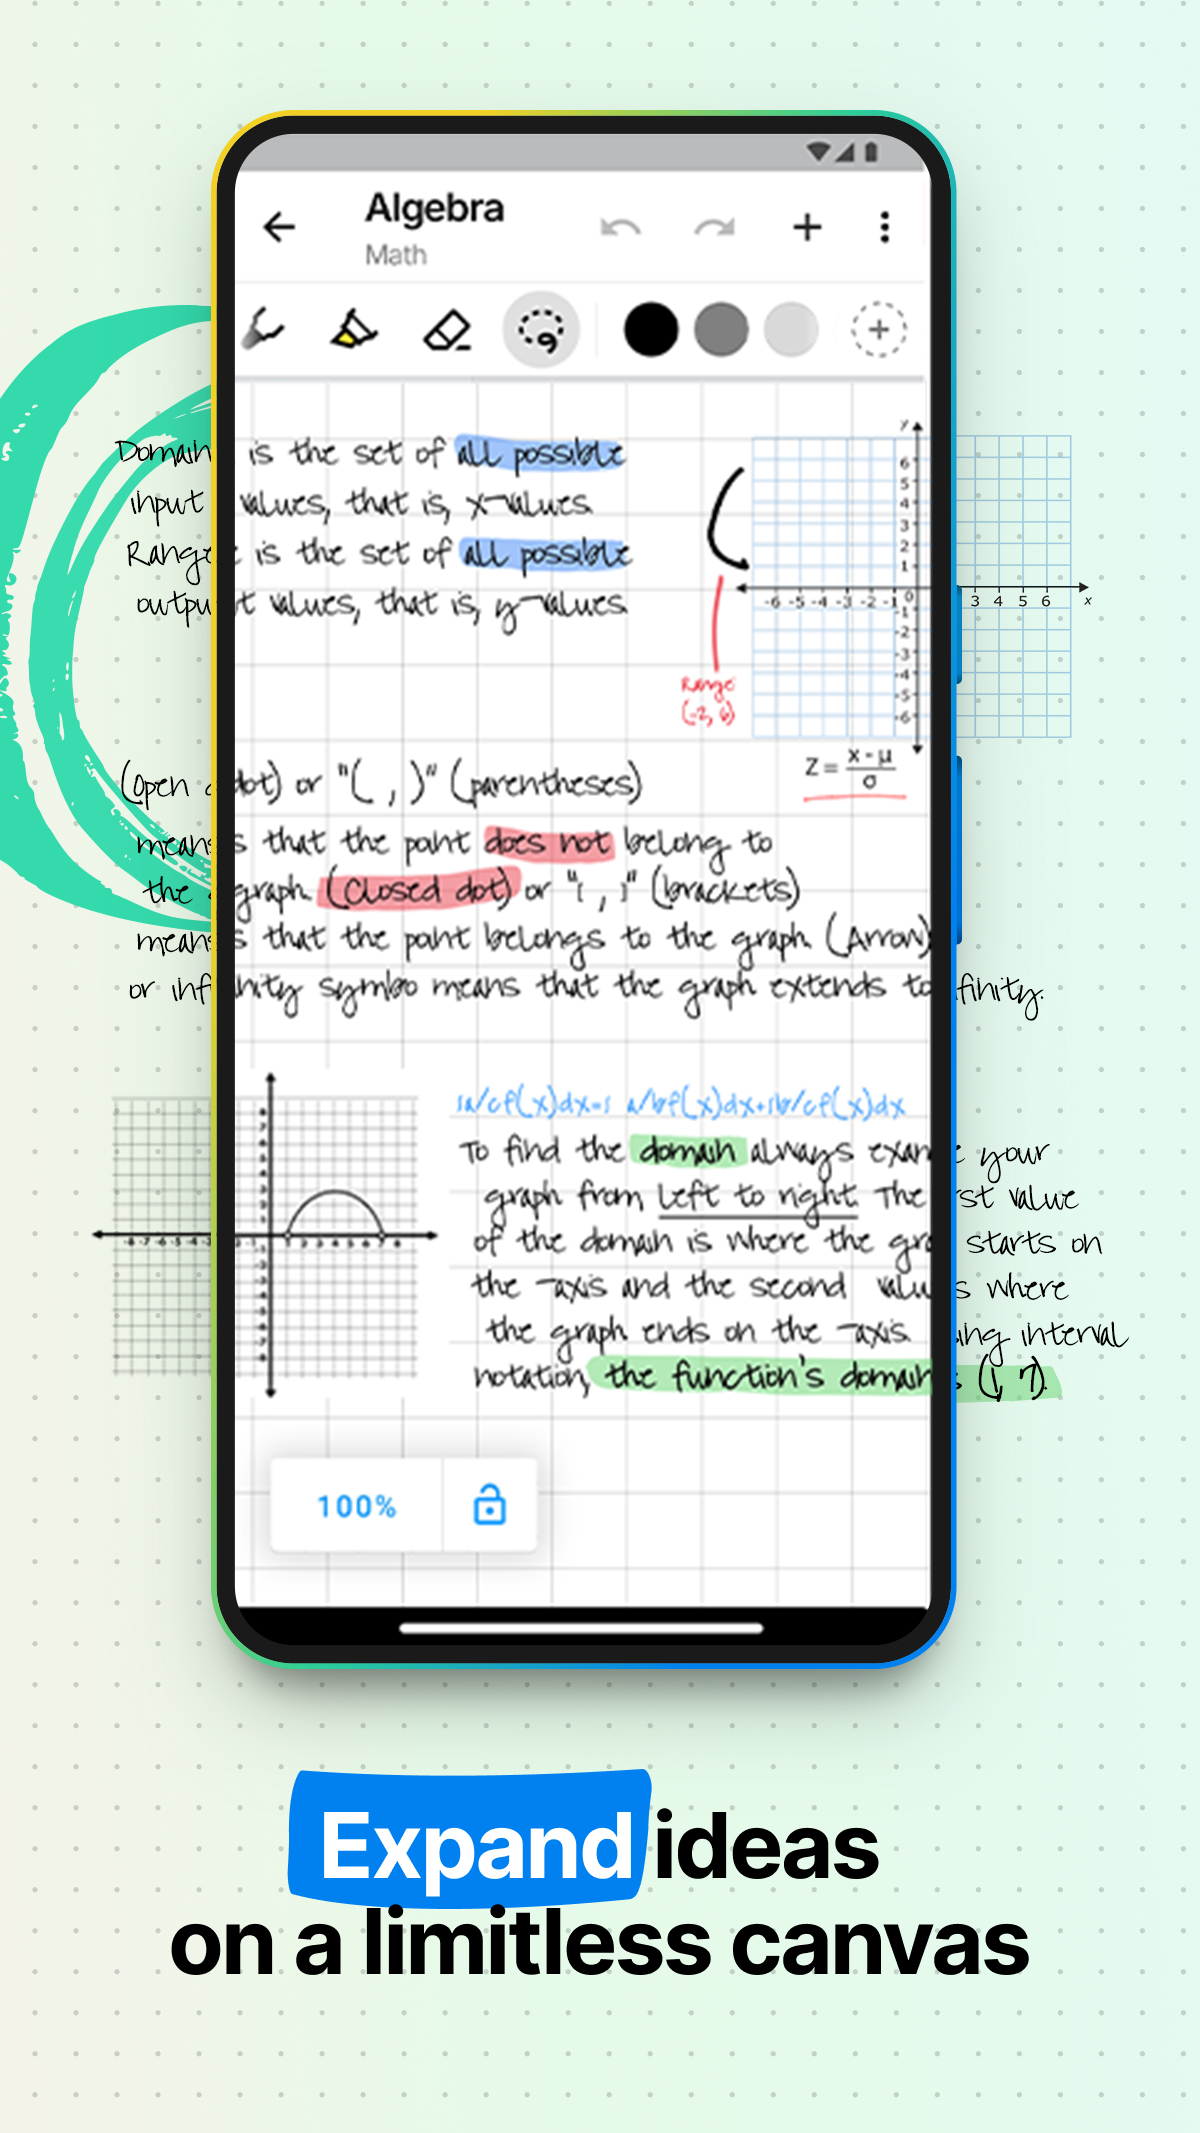 Algebra
Math
Domain is the set of all possible
input values, that is, x-values.
Range is the set of all possible
output values, that is, y-values.
y
6
5
4
3
2
1
-6 -5 -4 -3 -2 -1 0 3 4 5 6 x
-1
-2
-3
-4
-5
-6
Range
(-2, 6)
Z = x - μ
σ
(open dot) or "( , )" (parentheses)
means that the point does not belong to
the graph. (Closed dot) or "[ , ]" (brackets)
means that the point belongs to the graph. (Arrow)
or infinity symbo means that the graph extends to finity.
To find the domain always your
graph from left to right The value
of the domain is where the starts on
the -axis and the second where
the graph ends on the -axis. interval
notation, the function's domain (1, 7).
100%
Expand ideas
on a limitless canvas